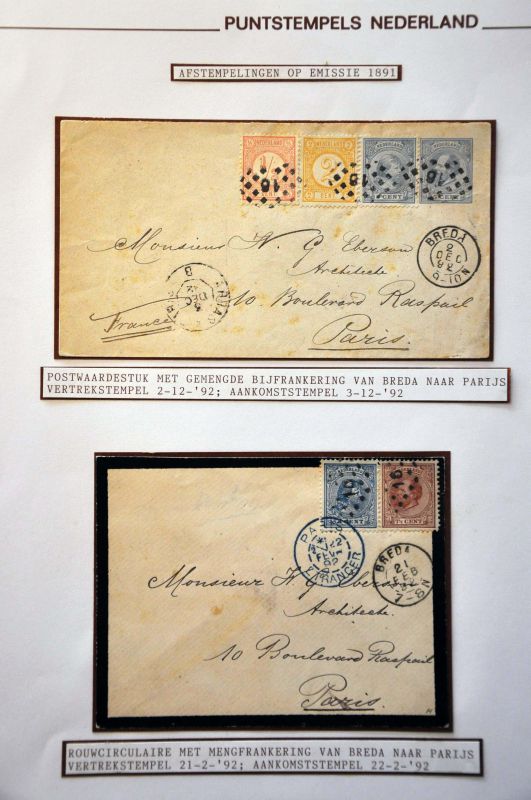 PUNTSTEMPELS NEDERLAND
AFSTEMPELINGEN OP EMISSIE 1891
NEDERLAND NEDERLAND
CENT CENT CENT
16 16 16
BREDA
2
DEC
92
9-10N
Monsieur W. G. Eberson
Architecte
10 Boulevard Raspail
France
Paris.
POSTWAARDESTUK MET GEMENGDE BIJFRANKERING VAN BREDA NAAR PARIJS
VERTREKSTEMPEL 2-12-'92; AANKOMSTSTEMPEL 3-12-'92
CENT 7½ CENT
16 16
ETRANGER
BREDA
21
FEB
92
7-8N
Monsieur W G Eberson
Architecte
10 Boulevard Raspail
Paris
ROUWCIRCULAIRE MET MENGFRANKERING VAN BREDA NAAR PARIJS
VERTREKSTEMPEL 21-2-'92; AANKOMSTSTEMPEL 22-2-'92